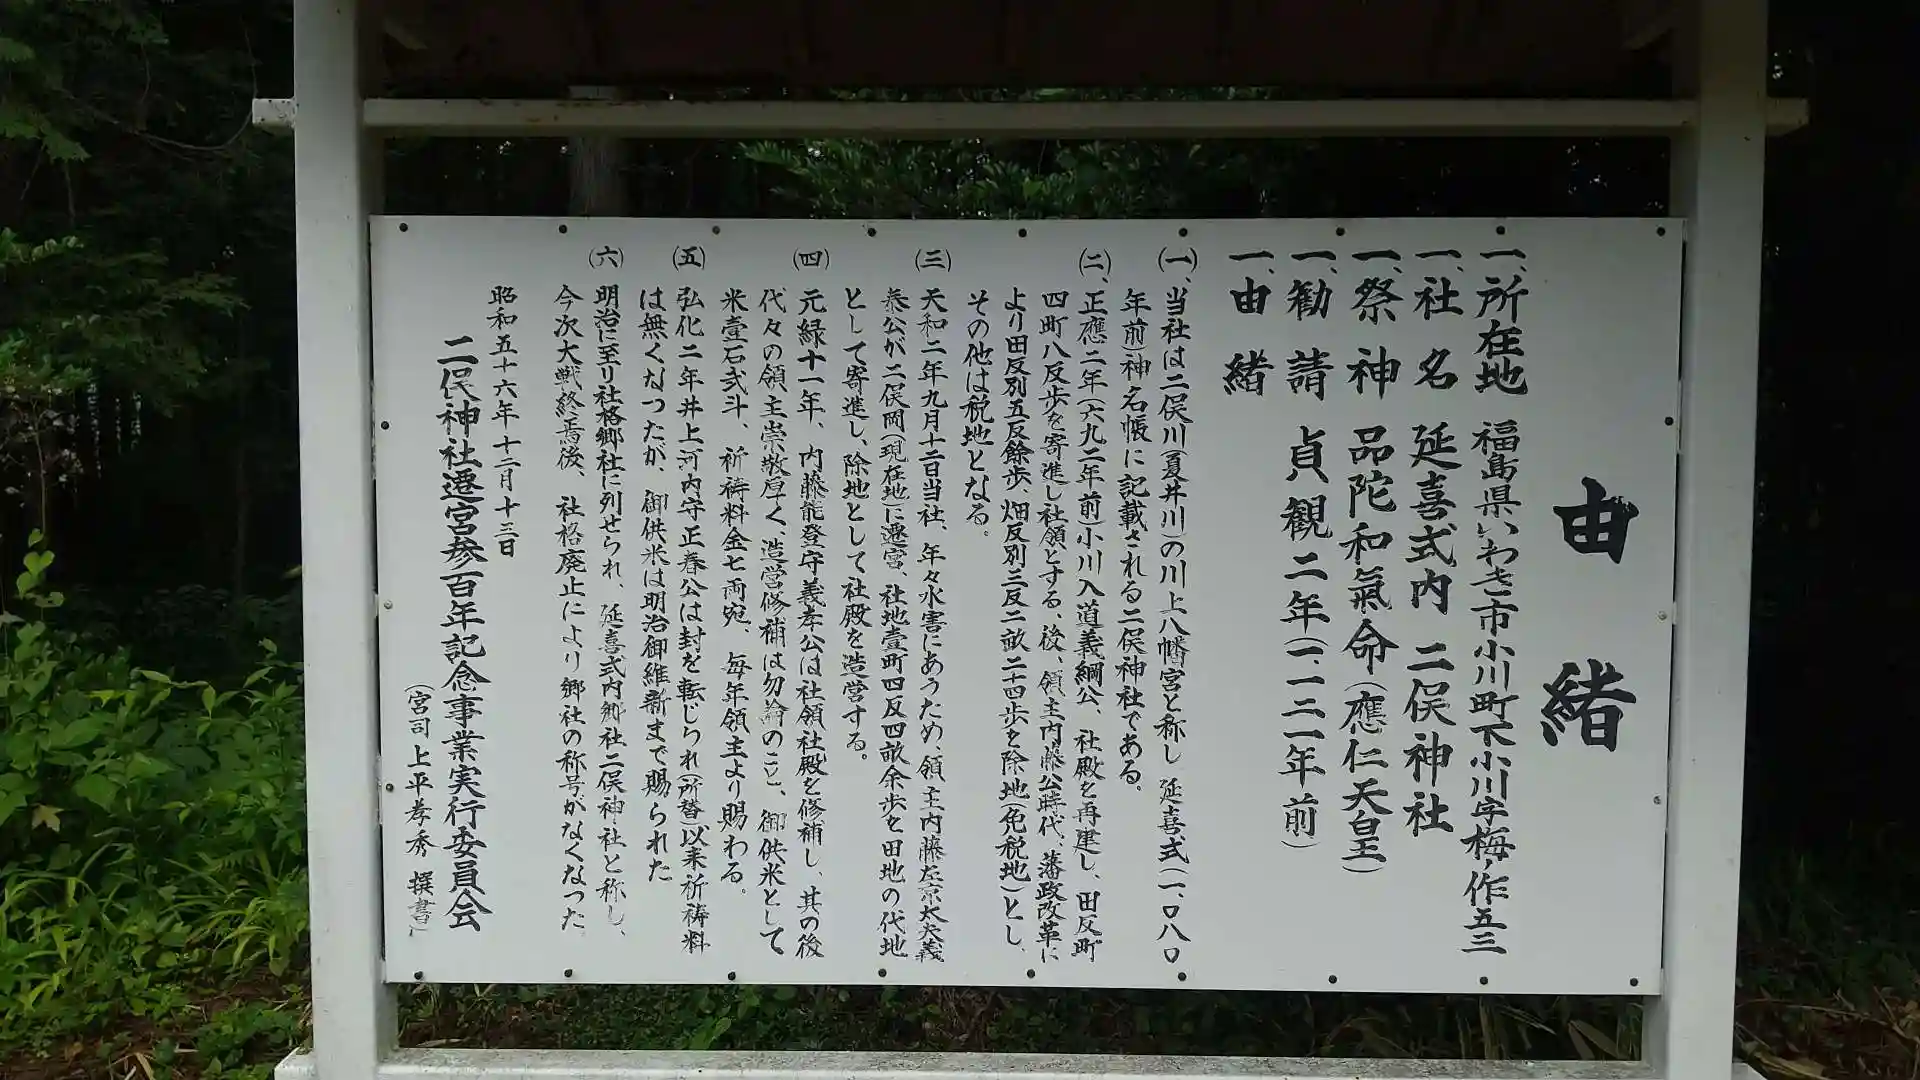 由緒
一、所在地 福島県いわき市小川町下小川字梅ノ作五三
一、社名 延喜式内 二俣神社
一、祭神 品陀和氣命(應仁天皇)
一、勧請 貞観二年(一、一二一年前)
一、由緒
(一)、当社は二俣川(夏井川)の川上八幡宮と称し 延喜式(一、〇八〇
年前)神名帳に記載される二俣神社である。
(二)、正應二年(六九二年前)小川入道義綱公、社殿を再建し、田反町
四町八反歩を寄進し社領とする。後、領主内藤公時代、藩政改革に
より田反別五反餘歩、畑反別三反二畝二十四歩を除地(免税地)とし、
その他は税地となる。
(三) 天和二年九月十二日当社、年々水害にあうため、領主内藤左京太夫義
泰公が二俣岡(現在地)に遷宮、社地壹町四反四畝余歩を田地の代地
として寄進し、除地として社殿を造営する。
(四) 元緑十一年、内藤能登守義孝公は社領社殿を修補し、其の後
代々の領主崇敬厚く、造営修補は勿論のこと、御供米として
米壹石弐斗、祈祷料金七両宛、毎年領主より賜わる。
(五) 弘化二年井上河内守正春公は封を転じられ(所替)以来祈祷料
は無くなったが、御供米は明治御維新まで賜られた
(六) 明治に至り社格郷社に列せられ、延喜式内郷社二俣神社と称し、
今次大戦終焉後、社格廃止により郷社の称号がなくなった
昭和五十六年十二月十三日
二俣神社遷宮参百年記念事業実行委員会
(宮司 上平孝秀 撰書)